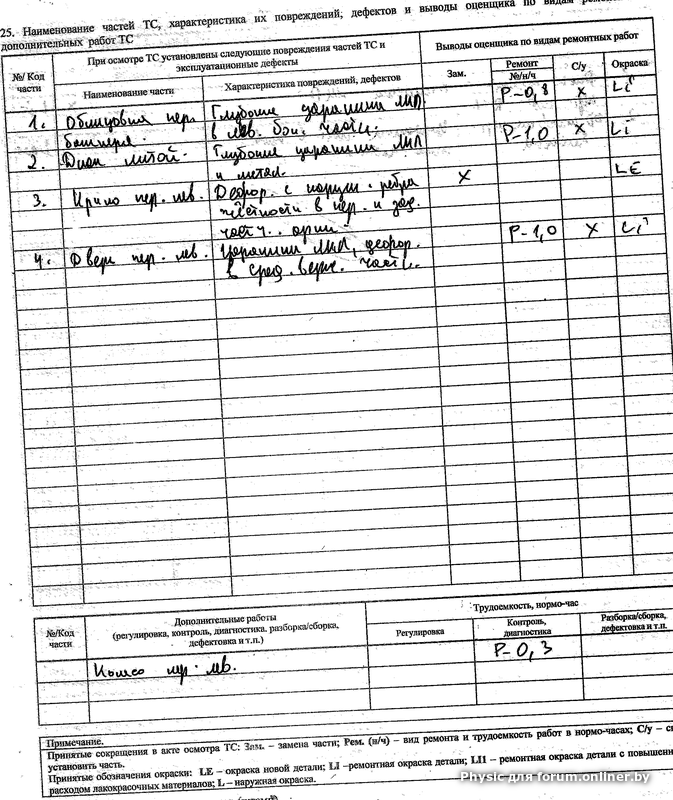 25. Наименование частей ТС, характеристика их повреждений, дефектов и выводы оценщика по видам
дополнительных работ ТС
№/ Код части
При осмотре ТС установлены следующие повреждения частей ТС и эксплуатационные дефекты
Выводы оценщика по видам ремонтных работ
Наименование части
Характеристика повреждений, дефектов
Зам.
Ремонт №/н/ч
С/у
Окраска
1. Облицовка пер. Глубокие царапины ЛКП Р-0,8 х Li
бампера. в лев. бок. части.
2. Диск литой. Глубокие царапины ЛКП Р-1,0 х Li
и метал.
3. Крыло пер. лев. Дефор. с наруш. ребра х LE
жёсткости в пер. и зад.
част.
4. Дверь пер. лев. Царапины ЛКП, дефор. Р-1,0 х Li
в сред. верх. части.
№/Код части
Дополнительные работы
(регулировка, контроль, диагностика, разборка/сборка, дефектовка и т.п.)
Трудоемкость, нормо-час
Регулировка
Контроль, диагностика
Разборка/сборка, дефектовка и т.п.
Колесо пер. лев. Р-0,3
Примечание.
Принятые сокращения в акте осмотра ТС: Зам. – замена части; Рем. (н/ч) – вид ремонта и трудоемкость работ в нормо-часах; С/у –
установить часть.
Принятые обозначения окраски: LE – окраска новой детали; LI –ремонтная окраска детали; LI1 – ремонтная окраска детали с
расходом лакокрасочных материалов; L – наружная окраска.
Physic для forum.onliner.by